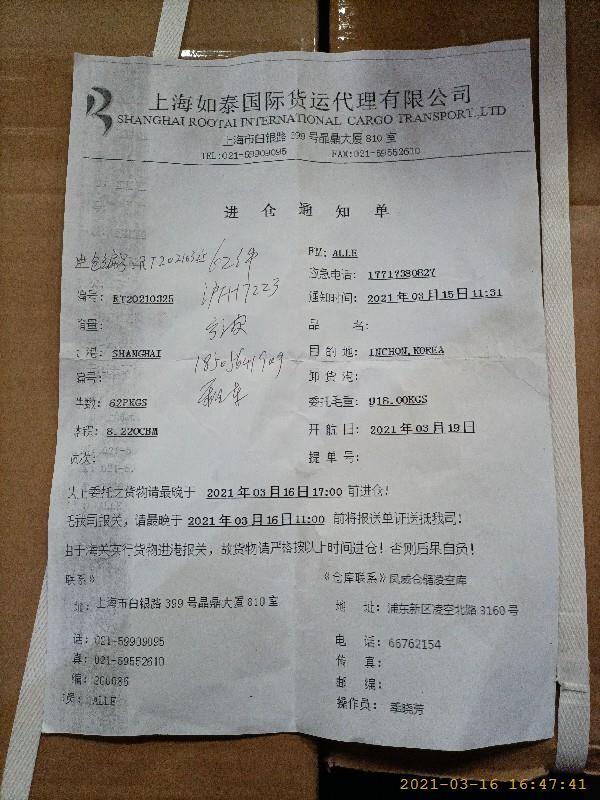 上海如泰国际货运代理有限公司
SHANGHAI ROOTAI INTERNATIONAL CARGO TRANSPORT.,LTD
上海市白银路 399 号晶鼎大厦 810 室
TEL:021-59909095 FAX:021-59552610
进仓通知单
进仓编号:RT20210325 62件
FM: ALLE
应急电话: 17717380827
编号: RT20210325
通知时间: 2021 年 03 月 15 日 11:31
品 名:
港: SHANGHAI
目的地: INCHON,KOREA
18505641909
编号:
卸货港:
件数: 62PKGS
委托毛重: 918.00KGS
体积: 8.220CBM
开航日: 2021 年 03 月 19 日
提单号:
以上委托之货物请最晚于 2021 年 03 月 16 日 17:00 前进仓!
我司报关, 请最晚于 2021 年 03 月 16 日 11:00 前将报送单证送抵我司!
由于海关实行货物进港报关, 故货物请严格按以上时间进仓! 否则后果自负!
联系》
《仓库联系》凤威仓储凌空库
址: 上海市白银路 399 号晶鼎大厦 810 室
地 址: 浦东新区凌空北路 3160 号
话: 021-59909095
电 话: 66762154
真: 021-59552610
传 真:
编: 200086
邮 编:
员: ALLE
操作员: 季晓芳
2021-03-16 16:47:41